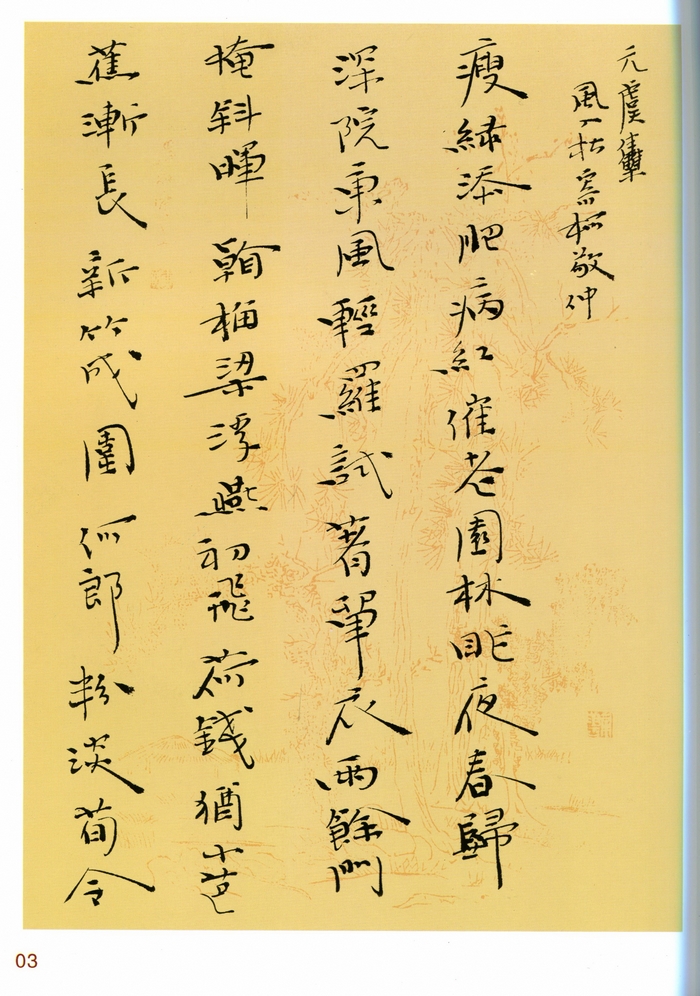 元虞集
風入松寄柯敬仲
瘦綠添肥病紅催老園林昨夜春歸
深院東風輕羅試著單衣雨餘門
掩斜暉看梅梁浮燕初飛荷錢猶小芭
蕉漸長新竹成圍何郎粉淡荀令
03